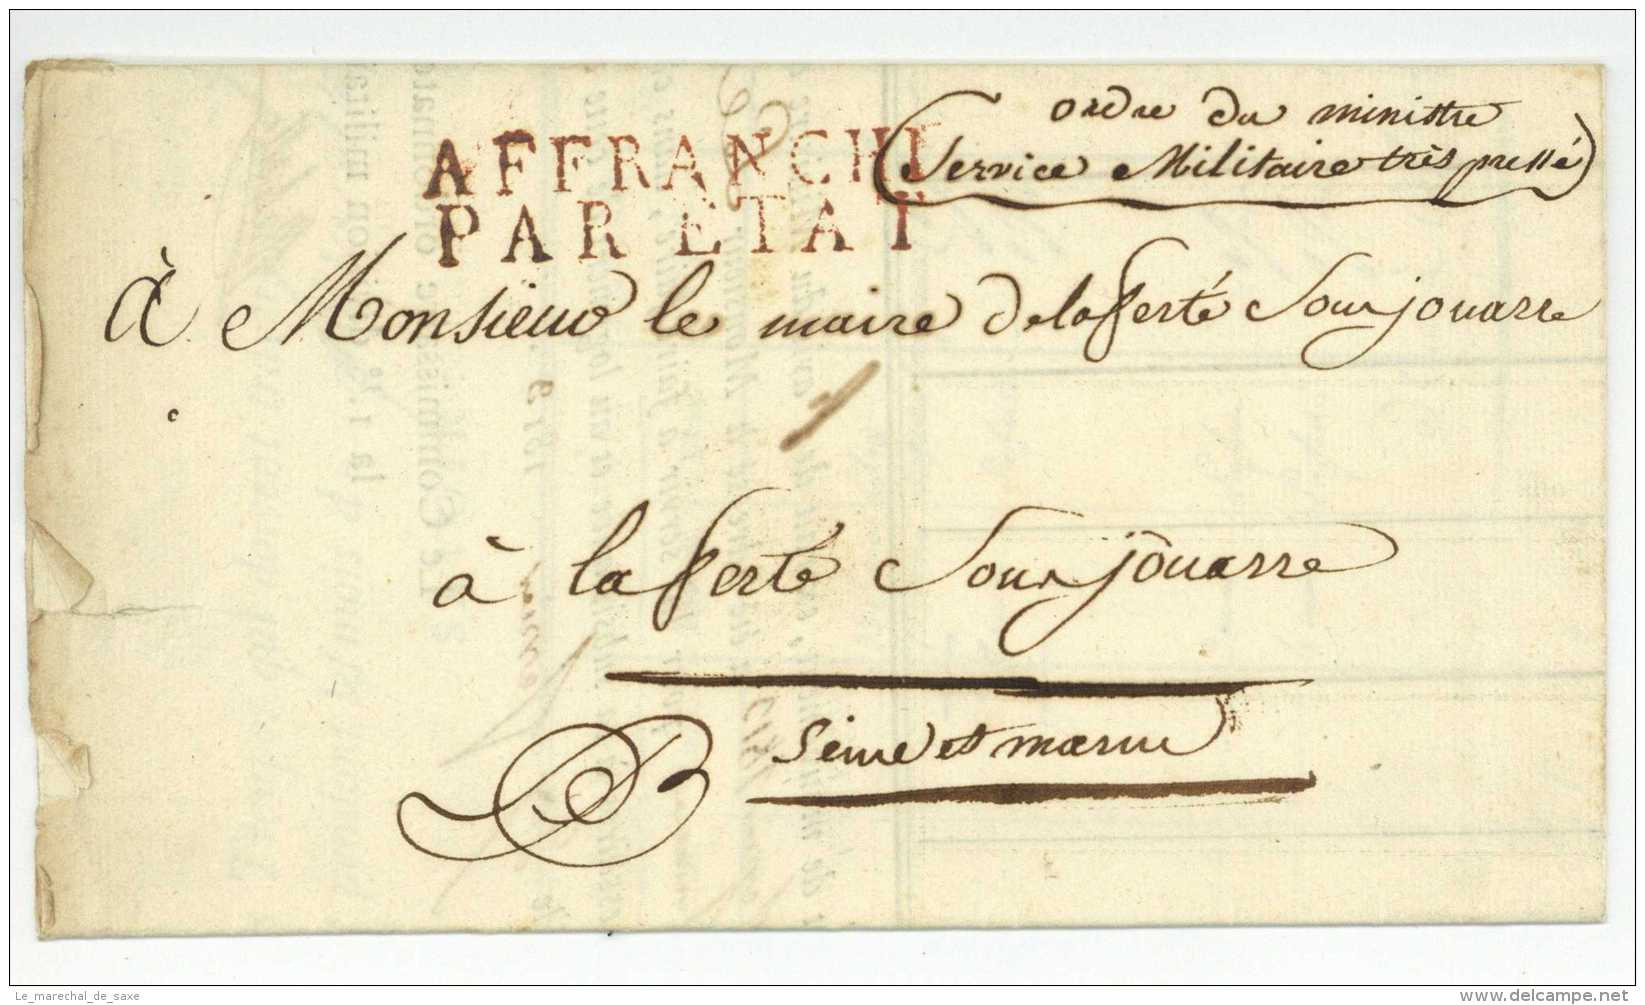 ordre du ministre
Service Militaire très pressé
AFFRANCHI
PAR ETAT
à Monsieur le maire de la ferté Sous jouarre
à la ferté Sous jouarre
Seine et marne
B
Le_marechal_de_saxe
delcampe.net